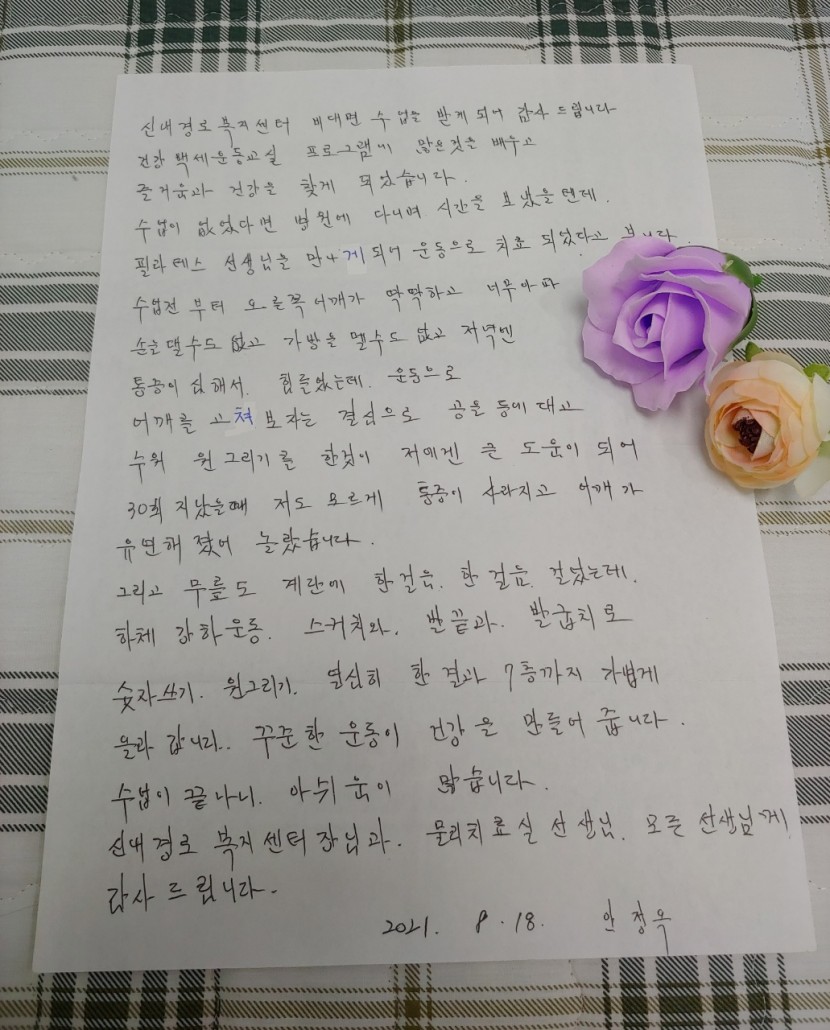 신내경로복지센터 비대면 수업을 받게 되어 감사 드립니다
건강 백세운동교실 프로그램에 많은것을 배우고
즐거움과 건강을 찾게 되었습니다.
수업이 없었다면 병원에 다니며 시간을 보냈을텐데.
필라테스 선생님을 만나게 되어 운동으로 치료 되었다고 봅니다.
수업전 부터 오른쪽 어깨가 딱딱하고 너무아파
손을 댈수도 없고 가방을 멜수도 없고 저녁엔
통증이 심해서. 힘들었는데. 운동으로
어깨를 고쳐보자는 결심으로 공을 등에 대고
수위 원그리기를 한것이 저에겐 큰 도움이 되어
30회 지났을때 저도 모르게 통증이 사라지고 어깨가
유연해졌어 놀랐습니다.
그리고 무릎도 계단에 한걸음. 한걸음. 걸었는데.
하체 강하운동. 스커치와. 발끝과. 발굽치로
숫자쓰기. 원그리기. 열심히 한결과 7층까지 가볍게
올라 갑니다.. 꾸준한 운동이 건강을 만들어 줍니다.
수업이 끝나니. 아쉬움이 많습니다.
신내경로 복지센터장님과. 물리치료실 선생님. 모든 선생님께
감사 드립니다.
2021. 8. 18. 안정옥